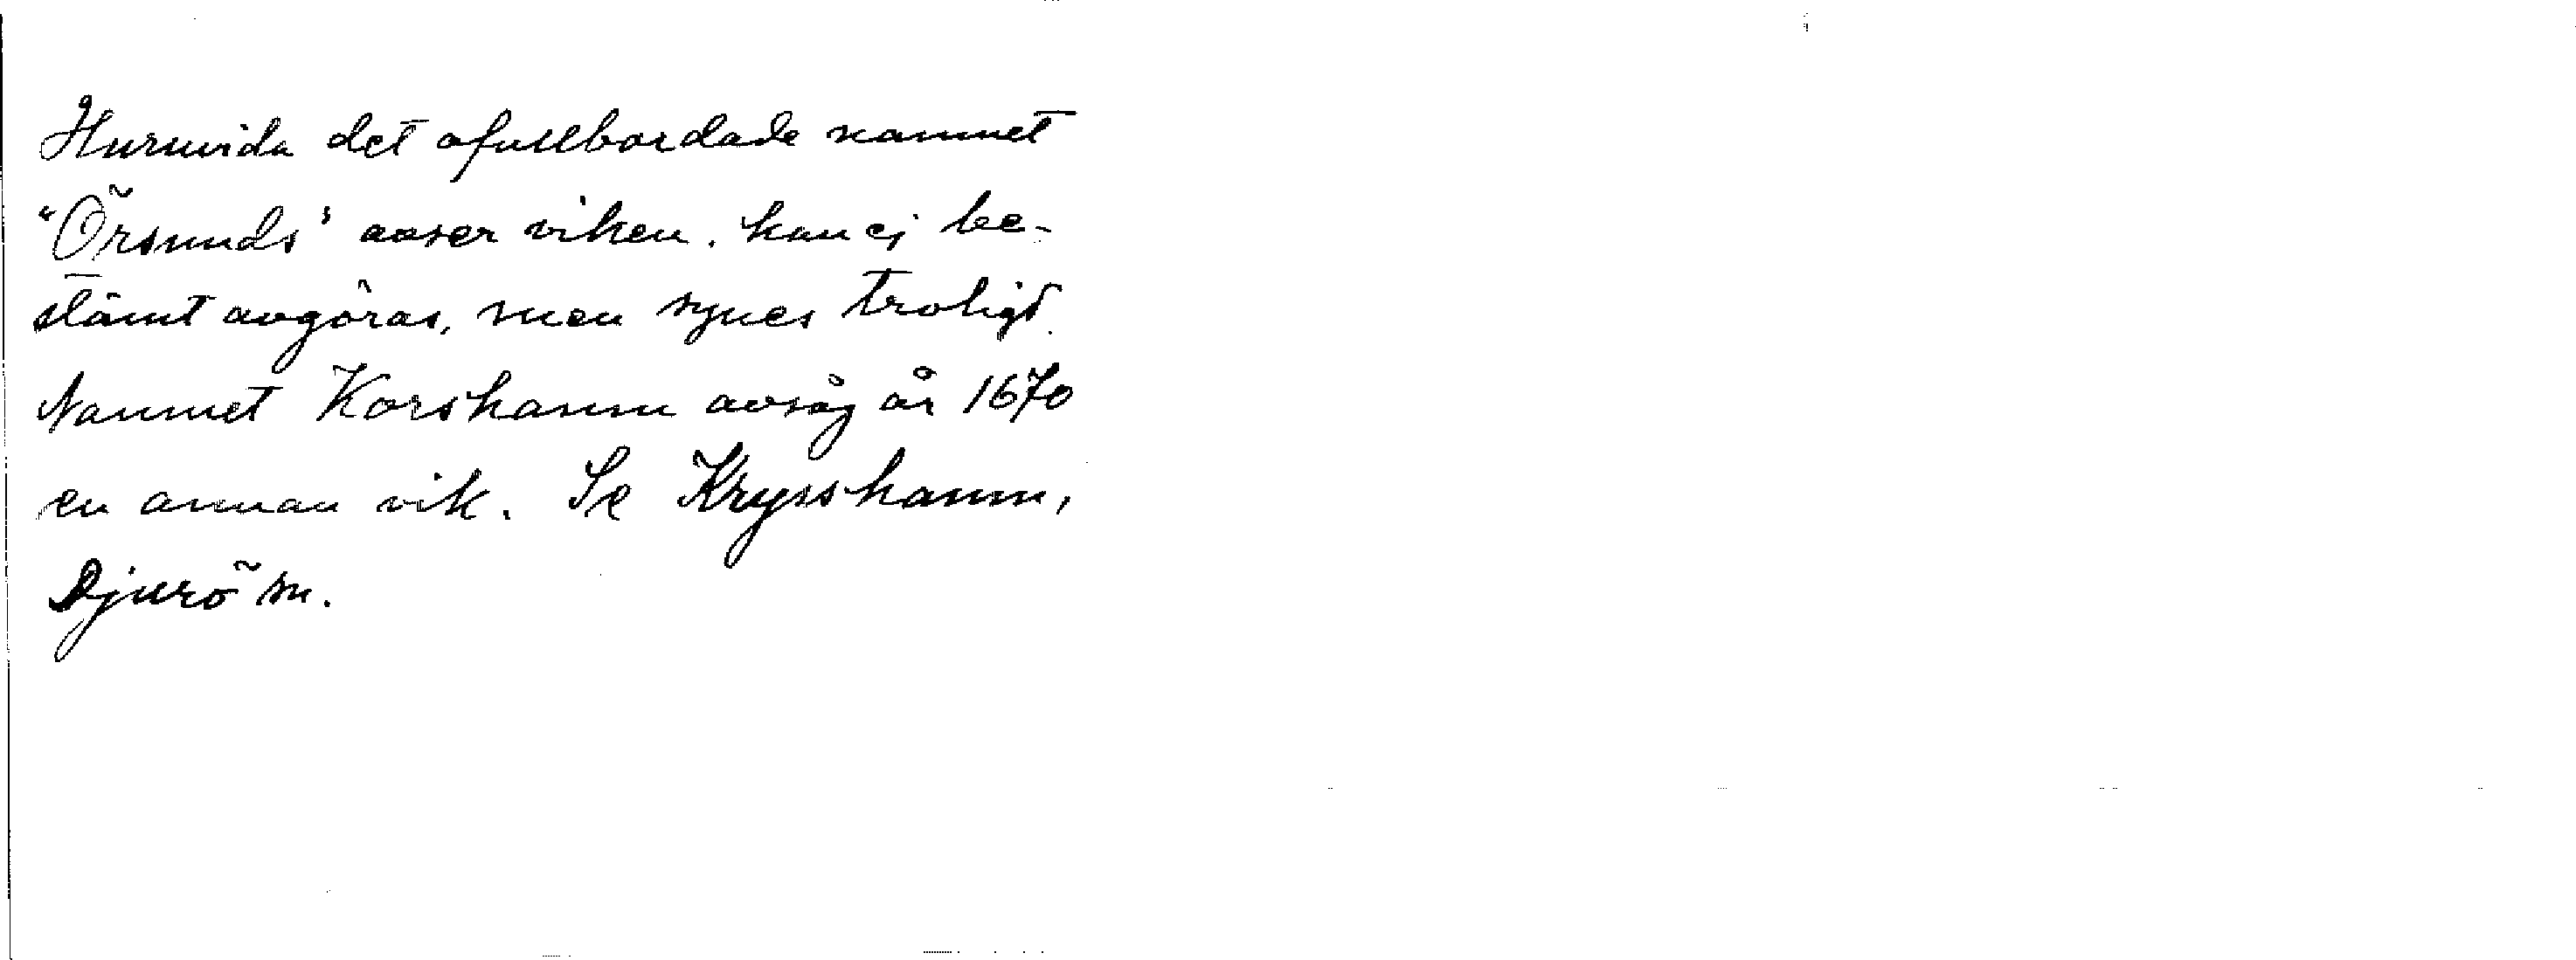 Huruvida det ofullbordade namnet
"Örsunds" avser viken, kan ej be-
stämt avgöras, men synes troligt.
Namnet Korshamn avsåg år 1670
en annan vik. Se Krysshamn,
Djurö sn.